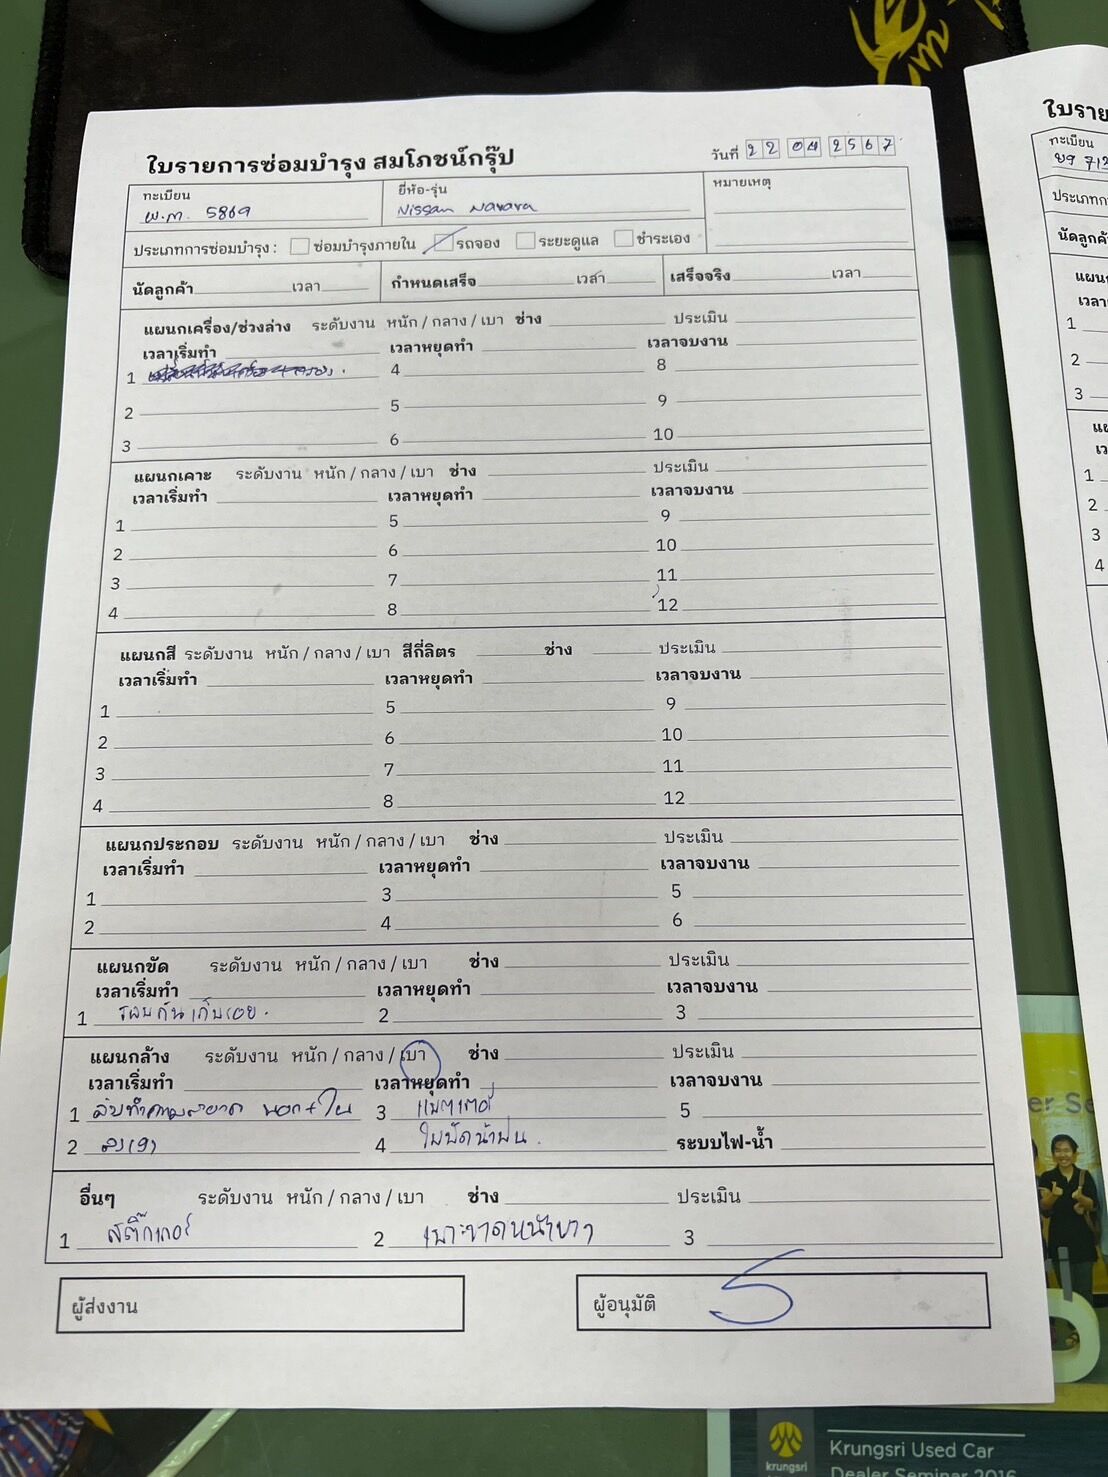 ใบรายการซ่อมบำรุง สมโภชน์กรุ๊ป
วันที่ 22 04 2567
ทะเบียน
5869
ยี่ห้อ-รุ่น
Nissan Navara
หมายเหตุ
ประเภทการซ่อมบำรุง : ซ่อมบำรุงภายใน รถจอง ระยะดูแล ชำระเอง
นัดลูกค้า เวลา กำหนดเสร็จ เวลา เสร็จจริง เวลา
แผนกเครื่อง/ช่วงล่าง ระดับงาน หนัก / กลาง / เบา ช่าง ประเมิน
เวลาเริ่มทำ เวลาหยุดทำ เวลาจบงาน
1 4 8
2 5 9
3 6 10
แผนกเคาะ ระดับงาน หนัก / กลาง / เบา ช่าง ประเมิน
เวลาเริ่มทำ เวลาหยุดทำ เวลาจบงาน
1 5 9
2 6 10
3 7 11
4 8 12
แผนกสี ระดับงาน หนัก / กลาง / เบา สีกี่ลิตร ช่าง ประเมิน
เวลาเริ่มทำ เวลาหยุดทำ เวลาจบงาน
1 5 9
2 6 10
3 7 11
4 8 12
แผนกประกอบ ระดับงาน หนัก / กลาง / เบา ช่าง ประเมิน
เวลาเริ่มทำ เวลาหยุดทำ เวลาจบงาน
1 3 5
2 4 6
แผนกขัด ระดับงาน หนัก / กลาง / เบา ช่าง ประเมิน
เวลาเริ่มทำ เวลาหยุดทำ เวลาจบงาน
1 เก็บรอย. 2 3
แผนกล้าง ระดับงาน หนัก / กลาง / เบา ช่าง ประเมิน
เวลาเริ่มทำ เวลาหยุดทำ เวลาจบงาน
1 ทำความสะอาด นอก+ใน 3 แบตเตอรี่ 5
2 4 ใบปัดน้ำฝน. ระบบไฟ-น้ำ
อื่นๆ ระดับงาน หนัก / กลาง / เบา ช่าง ประเมิน
1 สติ๊กเกอร์ 2 3
ผู้ส่งงาน
ผู้อนุมัติ
ใบราย
ทะเบียน
ประเภทกา
นัดลูกค้า
1
2
3
1
2
3
4
krungsri
Krungsri Used Car
Dealer Seminar 2016